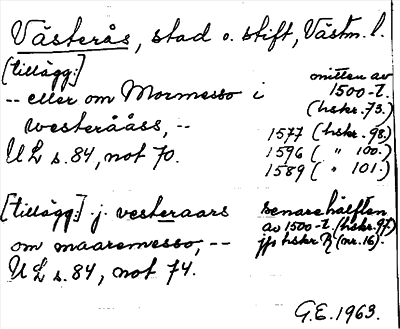 Västerås, stad o. stift, Västm. l.
[tillägg:] mitten av
-- eller om Mormesso i 1500-t.
westerååss, -- (hskr. 73.)
1577 (hskr. 98.)
UL s. 84, not 70. 1596 ( " 100.)
1589 ( " 101.)
[tillägg:] j. vesteraars senare hälften
om maaremesso, -- av 1500-t. (hskr. 97)
UL s. 84, not 74. jfr hskr (nr. 16).
G.E. 1963.